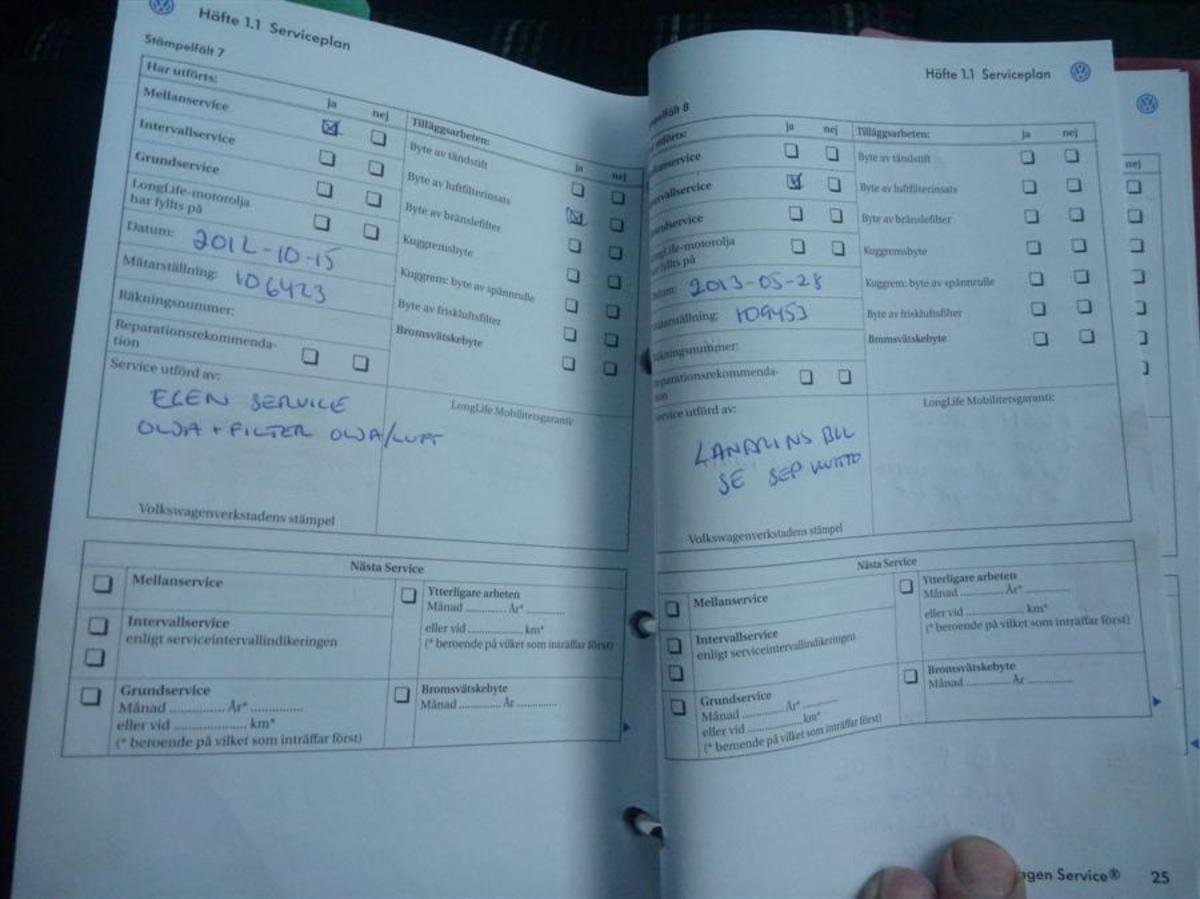 Häfte 1.1 Serviceplan
Stämpelfält 7
Har utförts:
ja nej
Mellanservice
Intervallservice
Grundservice
LongLife-motorolja
har fyllts på
Datum: 2012-10-15
Mätarställning: 106423
Räkningsnummer:
Reparationsrekommenda-
tion
Service utförd av:
EGEN SERVICE
OLJA + FILTER OLJA/LUFT
Volkswagenverkstadens stämpel
Tilläggsarbeten:
ja nej
Byte av tändstift
Byte av luftfilterinsats
Byte av bränslefilter
Kuggremsbyte
Kuggrem: byte av spännrulle
Byte av friskluftsfilter
Bromsvätskebyte
LongLife Mobilitetsgaranti:
Nästa Service
Mellanservice
Intervallservice
enligt serviceintervallindikeringen
Grundservice
Månad .............. År* .............
eller vid .................. km*
(* beroende på vilket som inträffar först)
Ytterligare arbeten
Månad ............. År* ............
eller vid .................. km*
(* beroende på vilket som inträffar först)
Bromsvätskebyte
Månad ............. År ............
Häfte 1.1 Serviceplan
pelfält 8
utförts:
ja nej
anservice
ervallservice
undservice
ongLife-motorolja
ar fyllts på
atum: 2013-05-28
ätarställning: 109453
äkningsnummer:
eparationsrekommenda-
ion
ervice utförd av:
BIL
SE SEP KVITTO
Volkswagenverkstadens stämpel
Tilläggsarbeten:
ja nej
Byte av tändstift
Byte av luftfilterinsats
Byte av bränslefilter
Kuggremsbyte
Kuggrem: byte av spännrulle
Byte av friskluftsfilter
Bromsvätskebyte
LongLife Mobilitetsgaranti:
Nästa Service
Mellanservice
Intervallservice
enligt serviceintervallindikeringen
Grundservice
Månad ............. År* ............
eller vid .................. km*
(* beroende på vilket som inträffar först)
Ytterligare arbeten
Månad ............. År* ............
eller vid .................. km*
(* beroende på vilket som inträffar först)
Bromsvätskebyte
Månad ............. År ............
nej
gen Service® 25